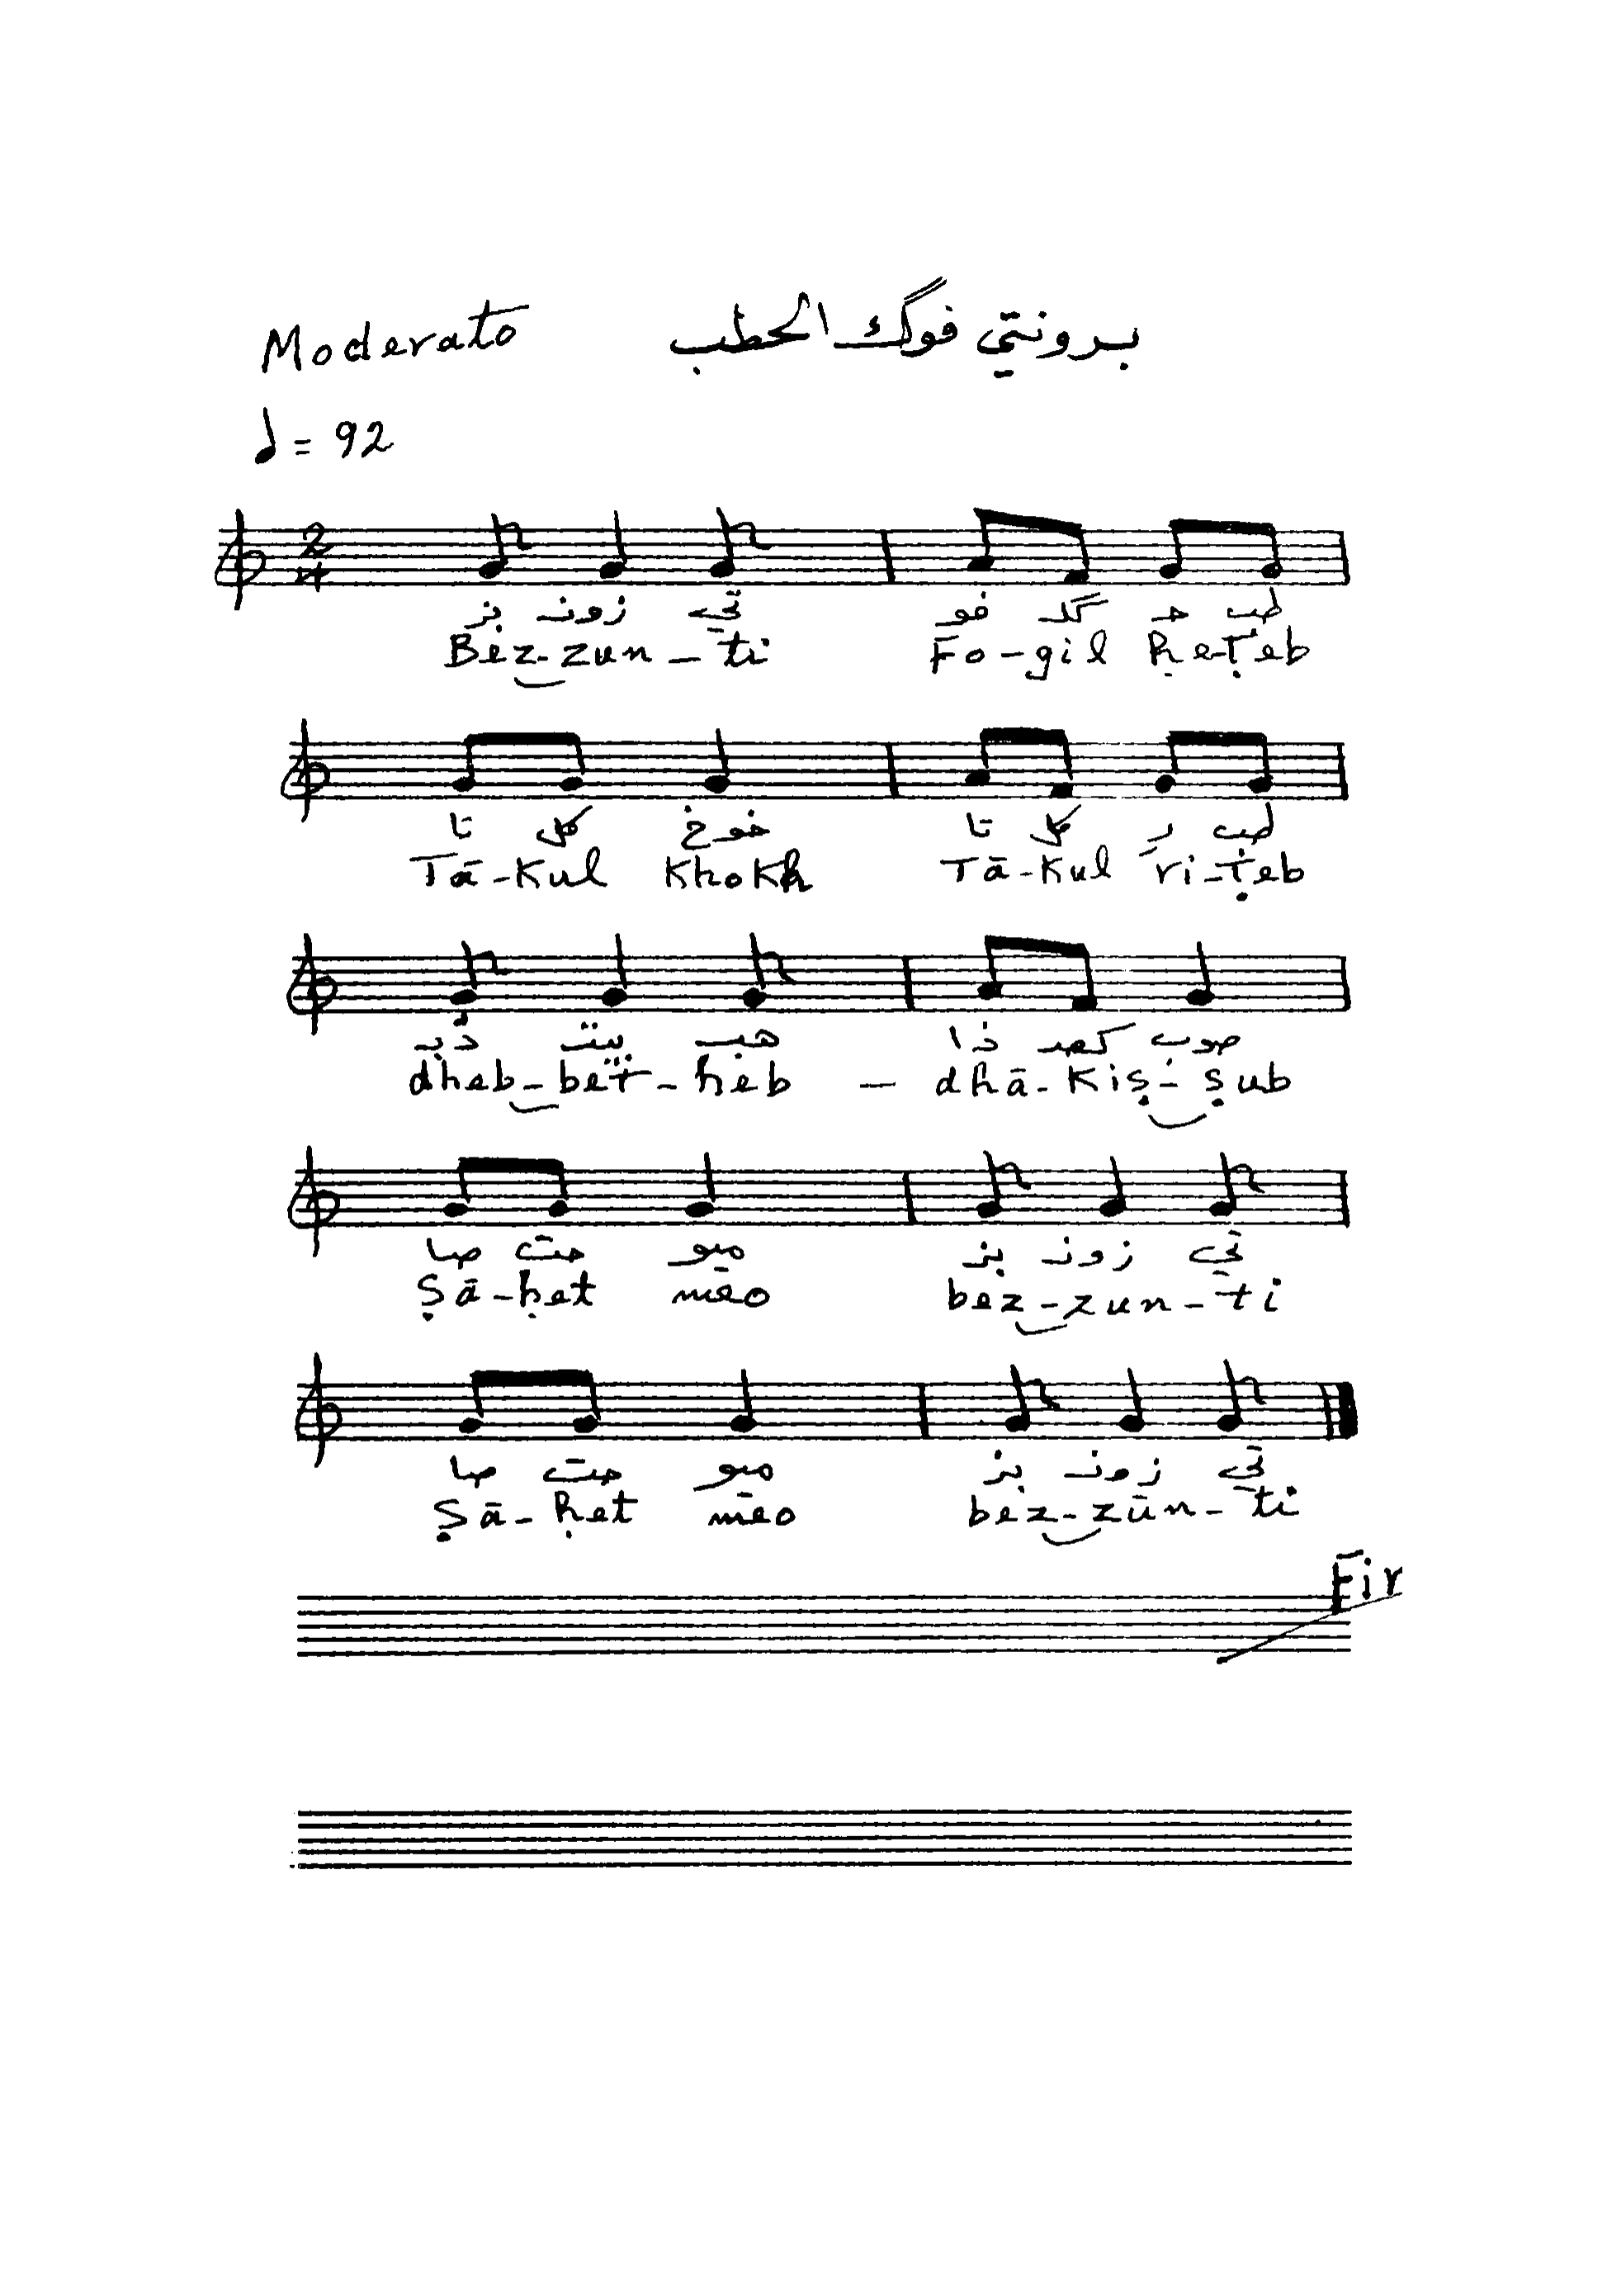 Moderato برونتي فوگ الحطب
♩ = 92
2/4
بز زونـ تي فو گلـ حـ طب
Bez-zun-ti Fo-gil ḥe-ṭeb
تا كل خوخ تا كل ر طب
Tā-Kul KhoKh Tā-Kul ri-ṭeb
ذبـ بيت هب ذا كصـ صوب
dheb-bet-heb - dhā-Kiṣ-ṣub
صا حت ميو بز زونـ تي
Ṣā-ḥet mēo bez-zun-ti
صا حت ميو بز زونـ تي
Ṣā-ḥet mēo bez-zūn-ti
Fir